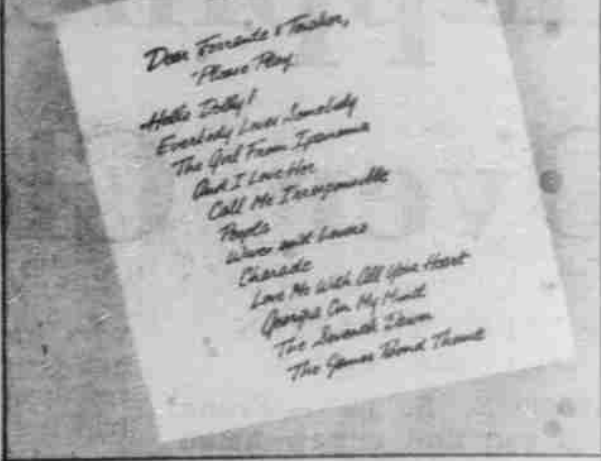 Dear Ferrante & Teicher,
"Please Play
Hello Dolly!
Everybody Loves Somebody
The Girl From Ipanema
And I Love Her
Call Me Irresponsible
People
Wives and Lovers
Charade
Love Me With All Your Heart
Georgia On My Mind
The Seventh Dawn
The James Bond Theme